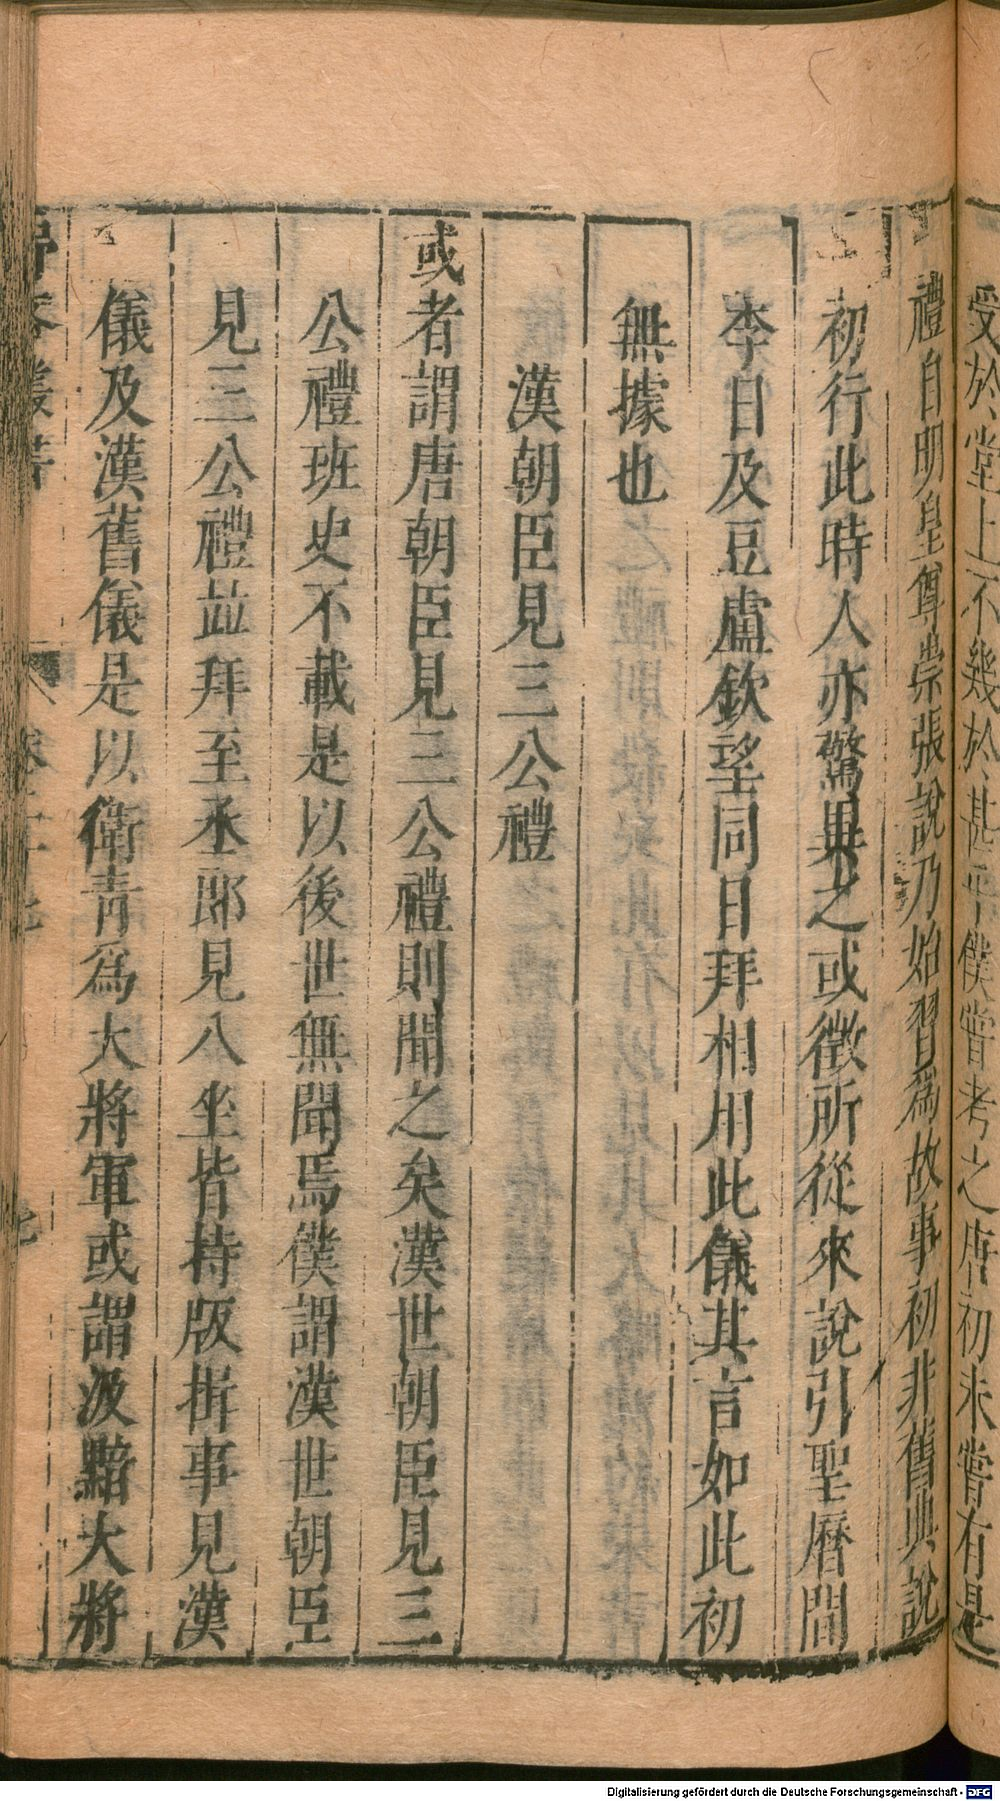 受於堂上不幾於甚乎僕嘗考之唐初未嘗有是
禮自明皇尊崇張說乃始習為故事初非舊典說
初行此時人亦驚異之或徵所從來說引聖曆間
李日及豆盧欽望同日拜相用此儀其言如此初
無據也
漢朝臣見三公禮
或者謂唐朝臣見三公禮則聞之矣漢世朝臣見三
公禮班史不載是以後世無聞焉僕謂漢世朝臣
見三公禮並拜至丞郎見八坐皆持版揖事見漢
儀及漢舊儀是以衛青爲大將軍或謂汲黯大將
Digitalisierung gefördert durch die Deutsche Forschungsgemeinschaft - DFG